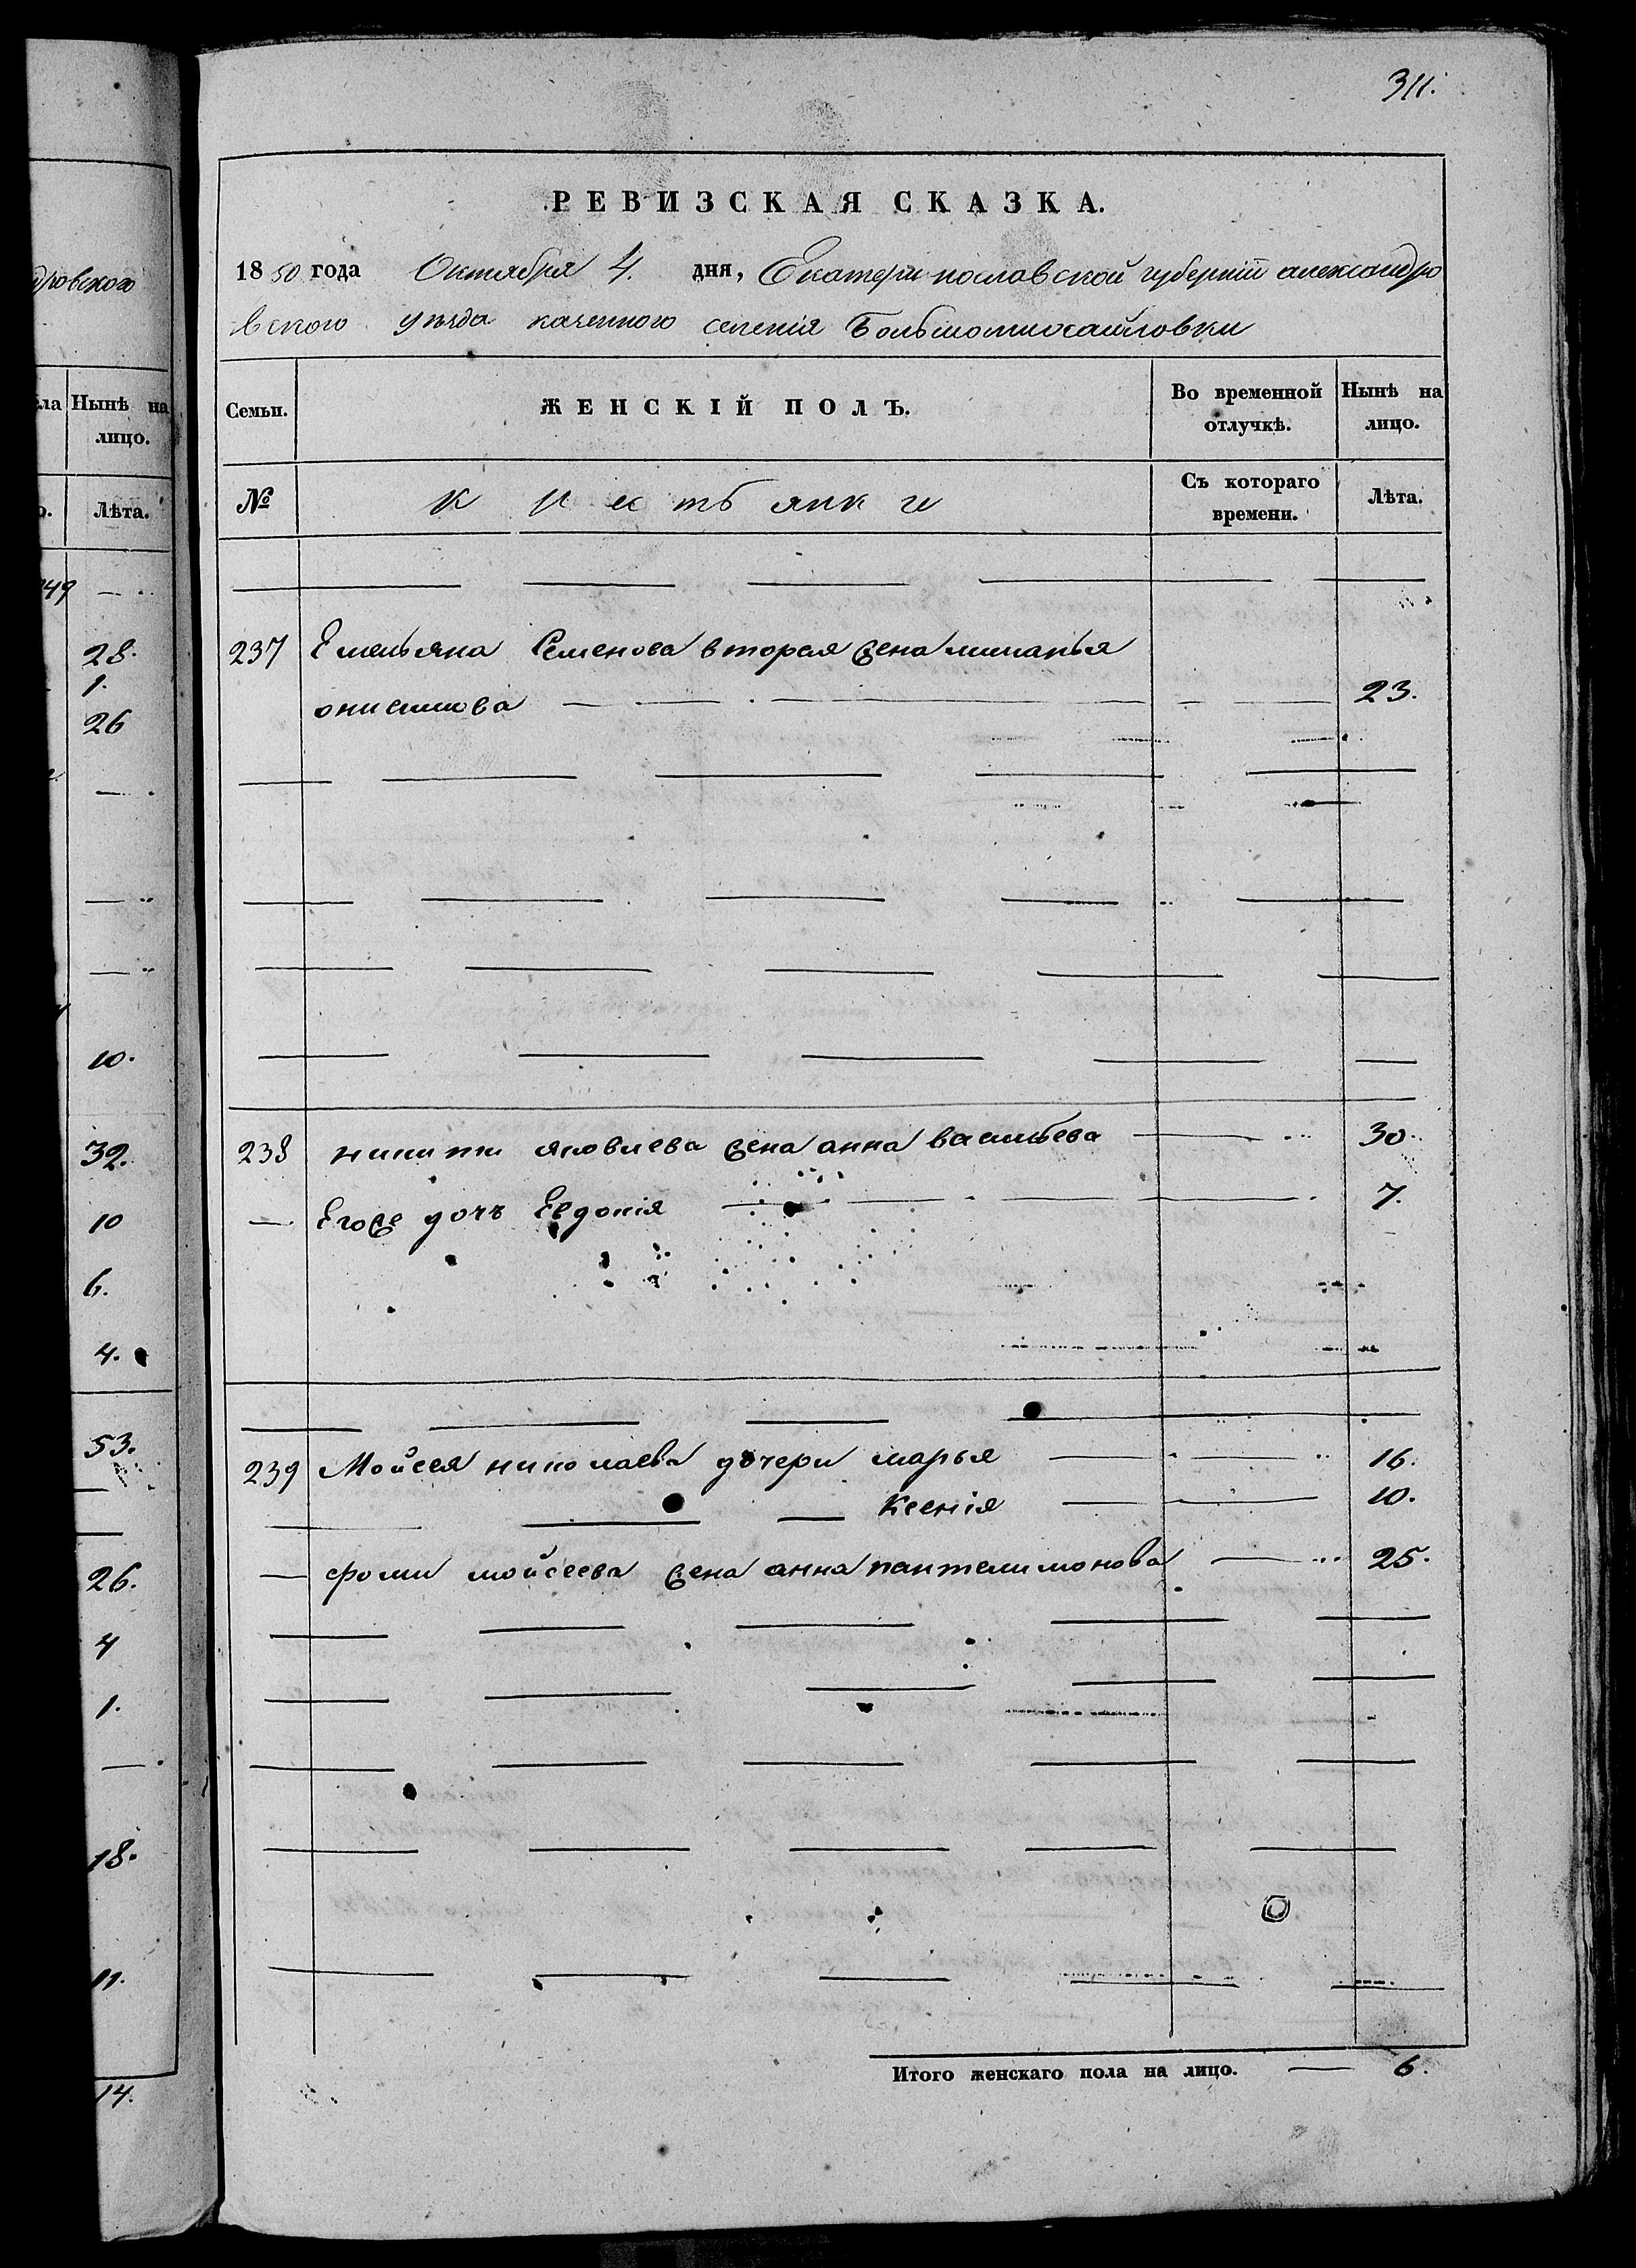 311.
РЕВИЗСКАЯ СКАЗКА.
1850 года Октября 4. дня, Екатеринославской губерніи александро
вского уезда казенного селенія Большомихайловки
дровского
Семьи. ЖЕНСКІЙ ПОЛЪ. Во временной отлучкѣ. Нынѣ на лицо.
ла Нынѣ на лицо.
№ Крестьянки Съ котораго времени. Лѣта.
Лѣта.
49
28.
1.
26
237 Емельяна Семенова вторая жена маланья
онисимова 23.
10.
32.
10
6.
4.
238 никити яковлева жена анна васильева 30
Егоже дочь Евдокія 7.
53.
26.
4
1.
18.
11.
14.
239 Мойсея николаева дочери марья 16.
Ксенія 10.
фоми мойсеева жена анна пантелимонова 25.
Итого женскаго пола на лицо. 6.